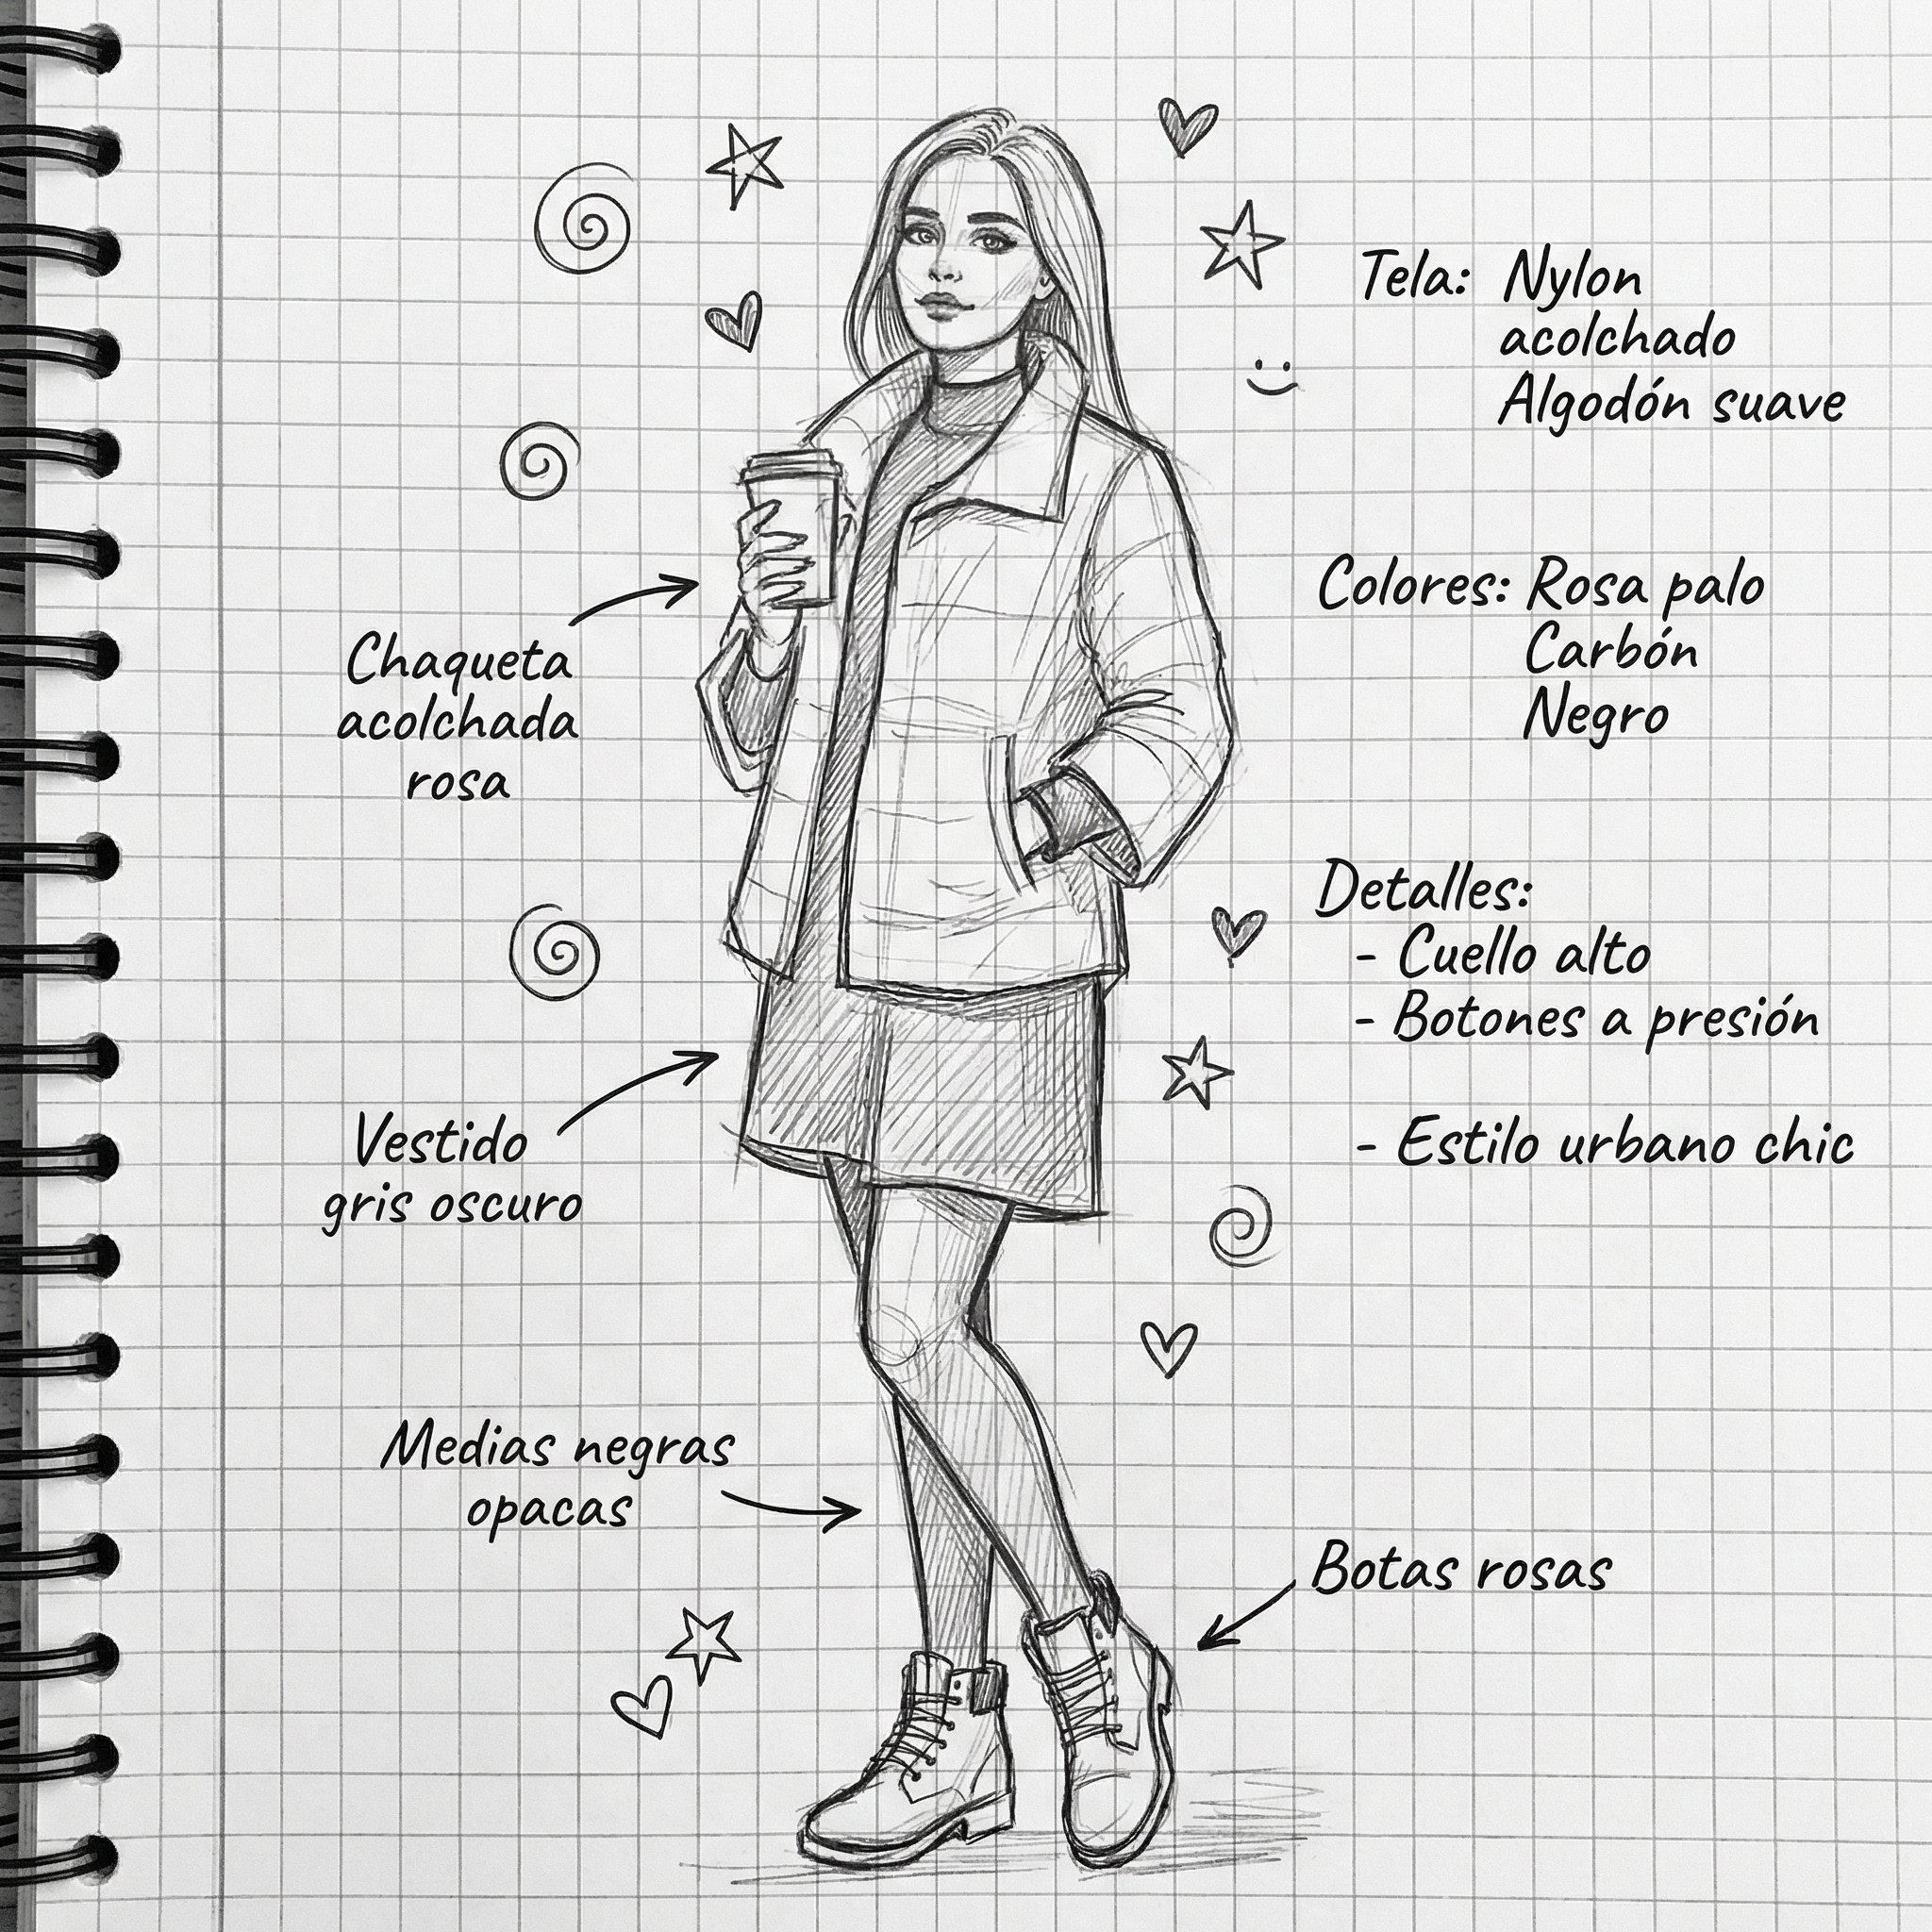 Tela: Nylon
acolchado
Algodón suave
Colores: Rosa palo
Carbón
Negro
Chaqueta
acolchada
rosa
Detalles:
- Cuello alto
- Botones a presión
- Estilo urbano chic
Vestido
gris oscuro
Medias negras
opacas
Botas rosas